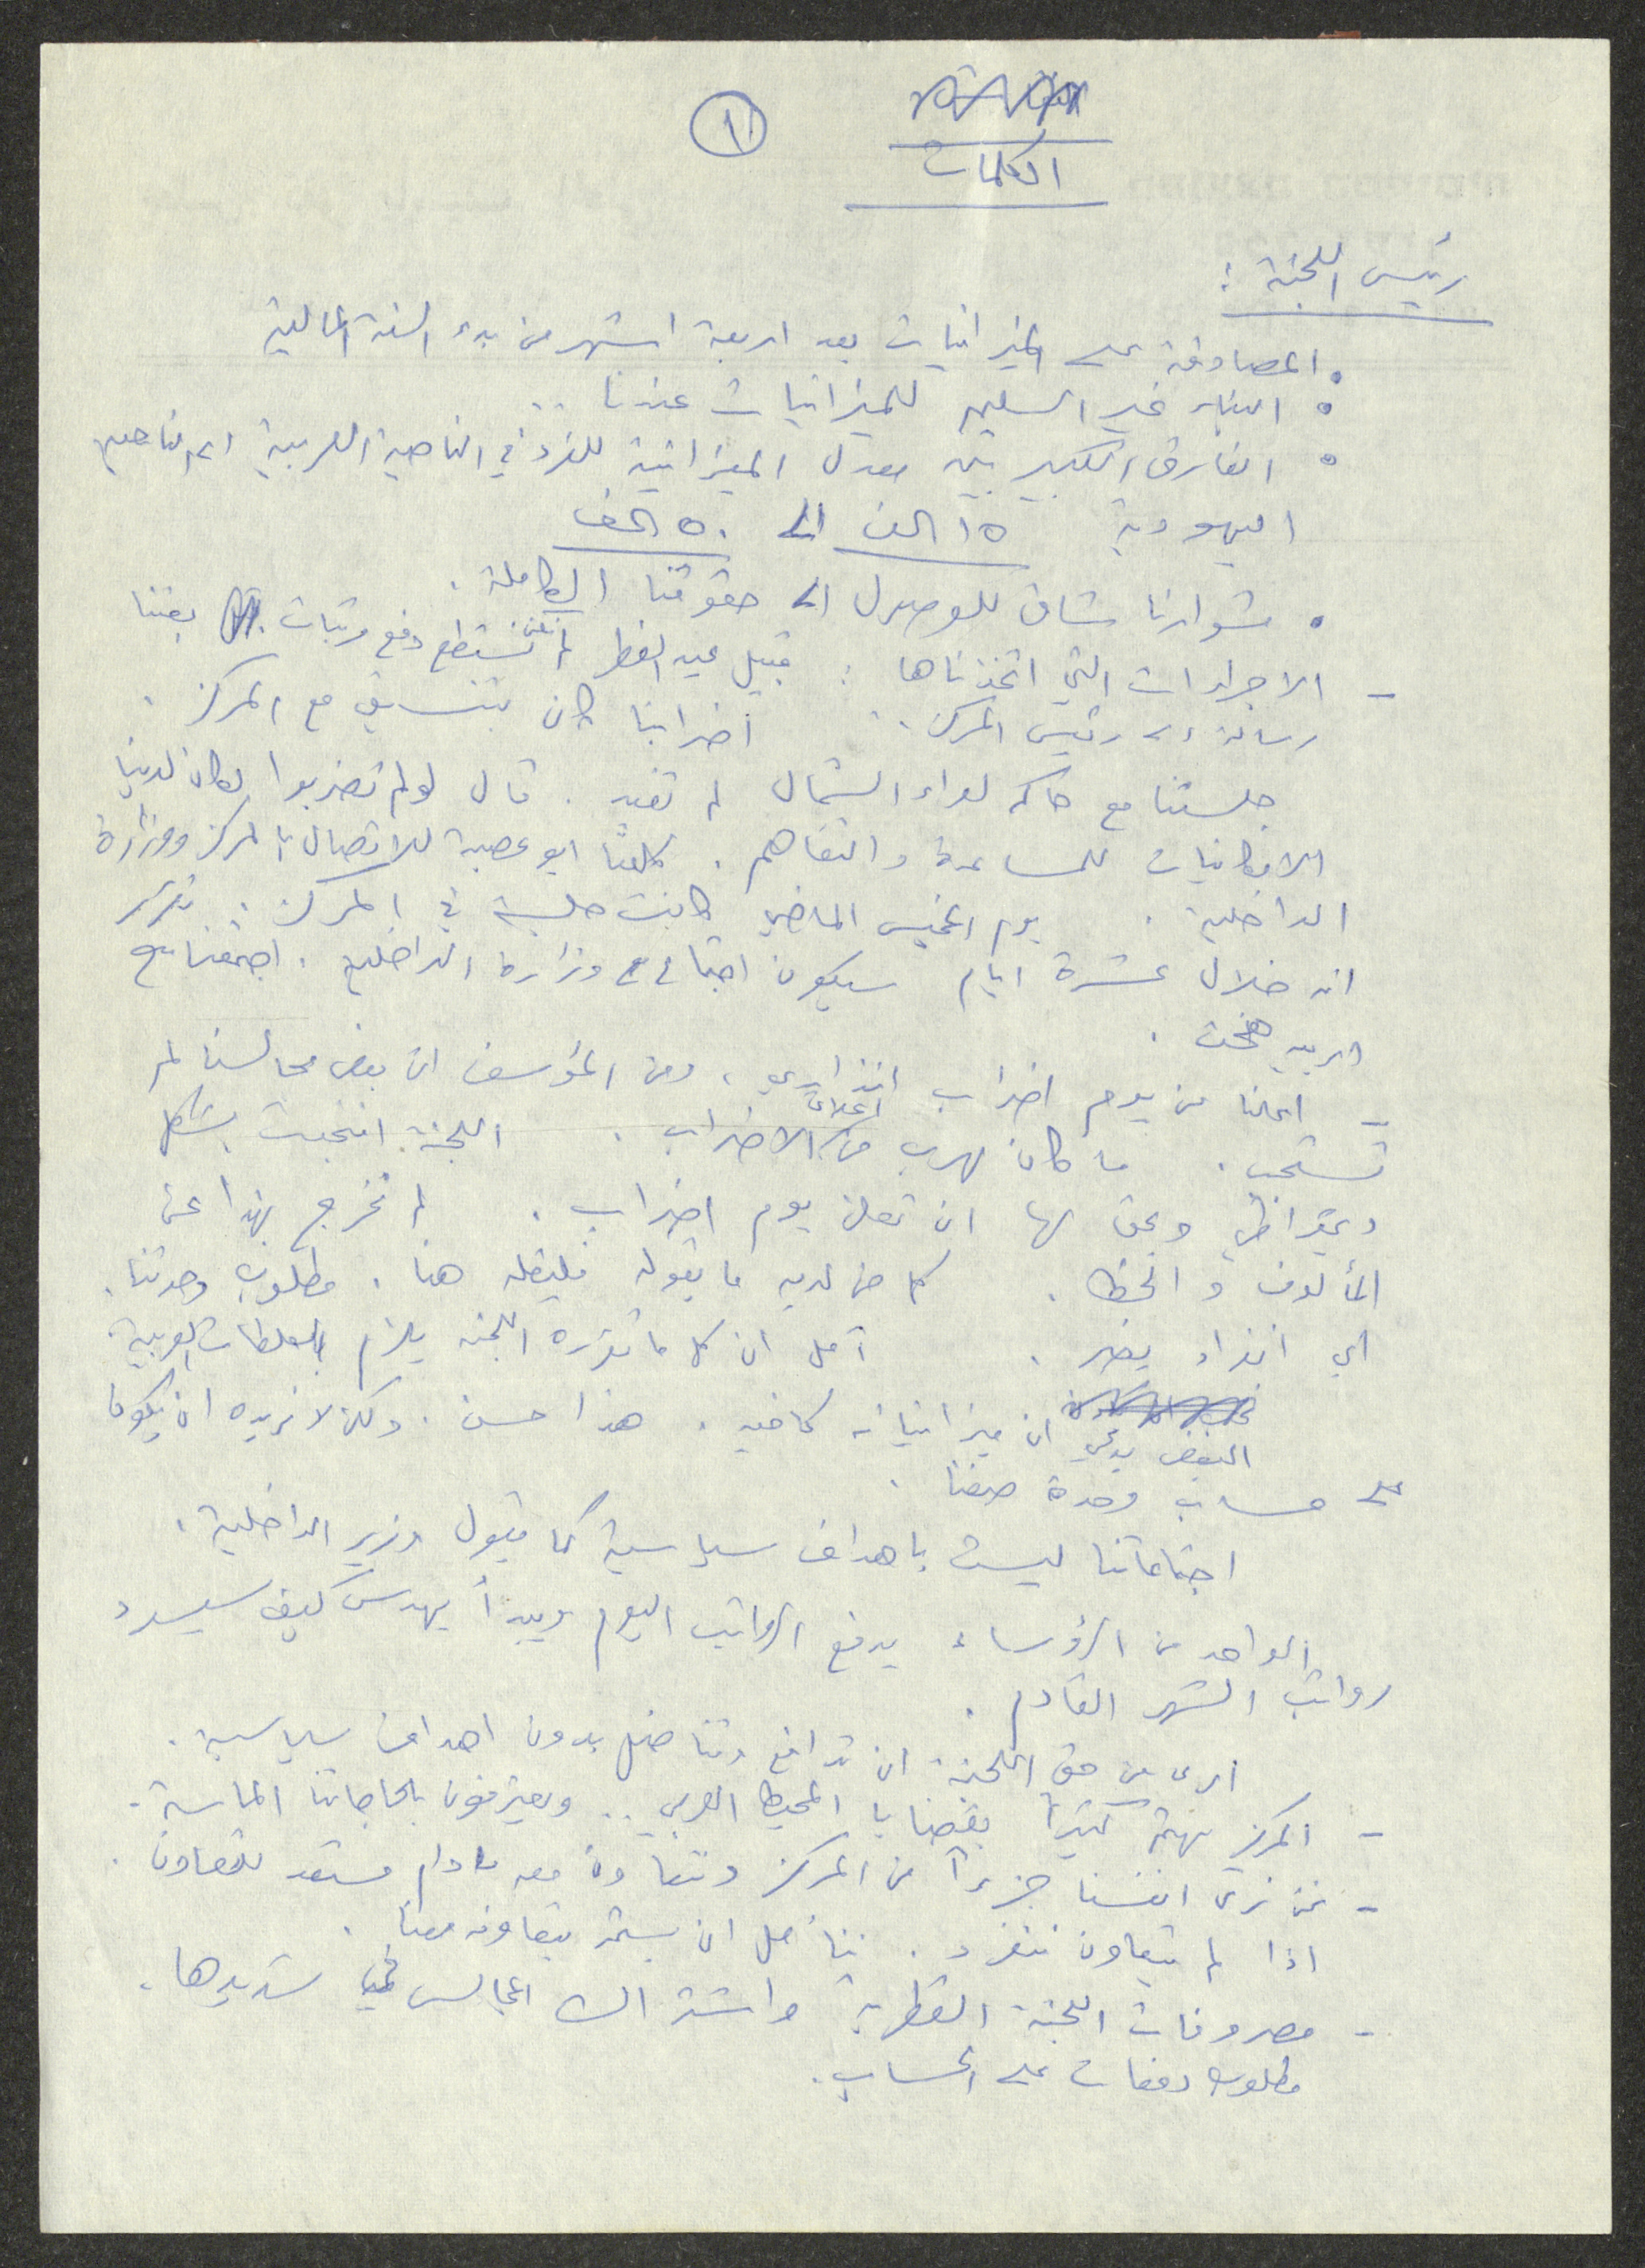 ①
الكلمات
رئيس اللجنة :
• المصادقة على الميزانيات بعد اربعة اشهر من بدء السنة المالية
• البناء غير السليم للميزانيات عندنا ..
• الفارق الكبير بين معدل الميزانية للفرد في الناحية العربية الى الناحية
اليهودية ١٥ الف الى ٥٠ الف
• مشوارنا شاق للوصول الى حقوقنا الكاملة .
- الاجراءات التي اتخذناها : قبيل عيد الفطر لم نكن نستطع دفع مرتبات . بعثنا
رسالة الى رئيس المركز .. اضرابنا كان بتنسيق مع المركز .
جلستنا مع حاكم لواء الشمال لم تفد . قال لو لم تضربوا لكان لدينا
الامكانيات للمساعدة والتفاهم . كلفنا ابو عصبة للاتصال بالمركز ووزارة
الداخلية . يوم الخميس الماضي كانت جلسة في المركز . تقرر
انه خلال عشرة ايام سيكون اجتماع مع وزارة الداخلية . اجتمعنا مع
- اعلنا عن يوم اضراب انذاري ، ومن المؤسف ان بعض مجالسنا لم
تستجب . ما كان مهرب من اعلان الاضراب . اللجنة انتخبت بشكل
ديمقراطي ويحق لها ان تعلن يوم اضراب . لم نخرج بهذا عن
المألوف والخط . كل من لديه ما يقوله فليقله هنا . مطلوب وحدتنا .
اي انفراد يضر . آمل ان كل ما تقرره اللجنة يلزم السلطات العربية .
البعض يدعي ان ميزانياته كافية . هذا حسن . ولكن لا نريده ان يكون
على حساب وحدة صفنا .
اجتماعاتنا ليست باهداف سياسية كما يقول وزير الداخلية .
الواحد من الرؤساء يدفع الرواتب اليوم ويبدأ يهدس كيف سيسدد
رواتب الشهر القادم .
ارى من حق اللجنة ان تدافع وتناضل بدون اهداف سياسية .
- المركز يهتم كثيراً بقضايا المحيط العربي .. ويعترفون بالحاجاتنا الماسة .
- نحن نرى انفسنا جزءاً من المركز ونتعاون معه مادام مستعد للتعاون .
اذا لم يتعاون ننفرد . نأمل ان يستمر بتعاونه معنا .
- مصروفات اللجنة القطرية واشتراك المجالس في تسديدها .
مطلوب دفعات على الحساب .